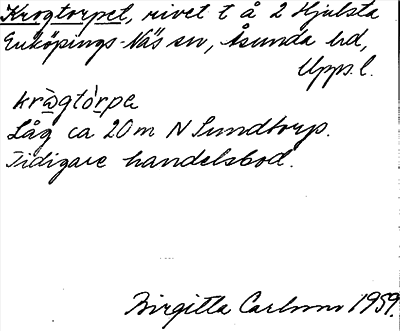 Krogtorpet, rivet t å 2 Hjulsta
Enköpings-Näs sn, Åsunda hd,
Upps. l.
kròg̀tórpe
Låg ca 20 m N Sundtorp.
Tidigare handelsbod.
Birgitta Carlsson 1959.